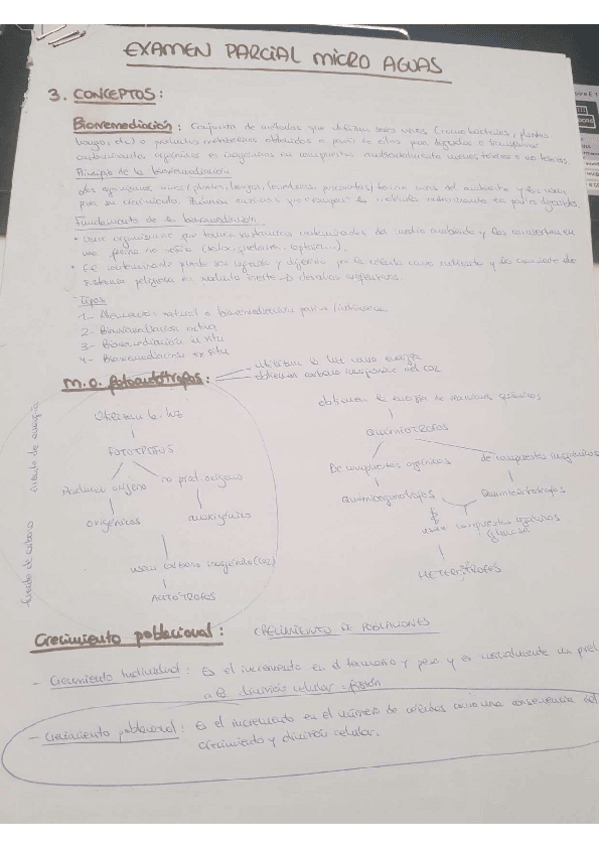 EXAMEN PARCIAL MICRO AGUAS
3. CONCEPTOS:
Biorremediación: Conjunto de métodos que utilizan seres vivos (como bacterias, plantas
hongos, etc) o productos metabólicos obtenidos a partir de ellos para degradar o transformar
contaminantes orgánicos e inorgánicos en compuestos medioambientales menos tóxicos o no tóxicos.
Principio de la biorremediación
Los organismos vivos (plantas, hongos, levaduras,
para su crecimiento.
Fundamento de la biorremediación
• Usar organismos que toman sustancias contaminadas del medio ambiente y las convierten en
una forma no nociva
• El contaminante puede ser ingerido y digerido por la célula como nutriente y la convierte de
sustancia peligrosa en producto inerte → desechos
- Tipos
1- Atenuación natural o biorremediación pasiva/intrínseca
2- Biorremediación activa
3- Biorremediación in situ
4- Biorremediación ex situ
M.O. fotoautótrofos:
- utilizan la luz como energía
- obtienen carbono inorgánico del CO2
fuente de energía
Utilizan la luz
FOTOTROFOS
Producen oxígeno
no prod. oxígeno
oxigénicos
anoxigénicos
fuente de carbono
usan carbono inorgánico (CO2)
AUTOTROFOS
obtienen la energía de reacciones químicas
QUIMIOTROFOS
De compuestos orgánicos
de compuestos inorgánicos
Quimiorganotrofos
Quimiolitotrofos
usan compuestos orgánicos
glucosa
HETEROTROFOS
Crecimiento poblacional: CRECIMIENTO DE POBLACIONES
- Crecimiento individual: Es el incremento en el tamaño y peso y es normalmente un prel
a la división celular = fisión
- Crecimiento poblacional: Es el incremento en el número de células como una consecuencia del
crecimiento y división celular.